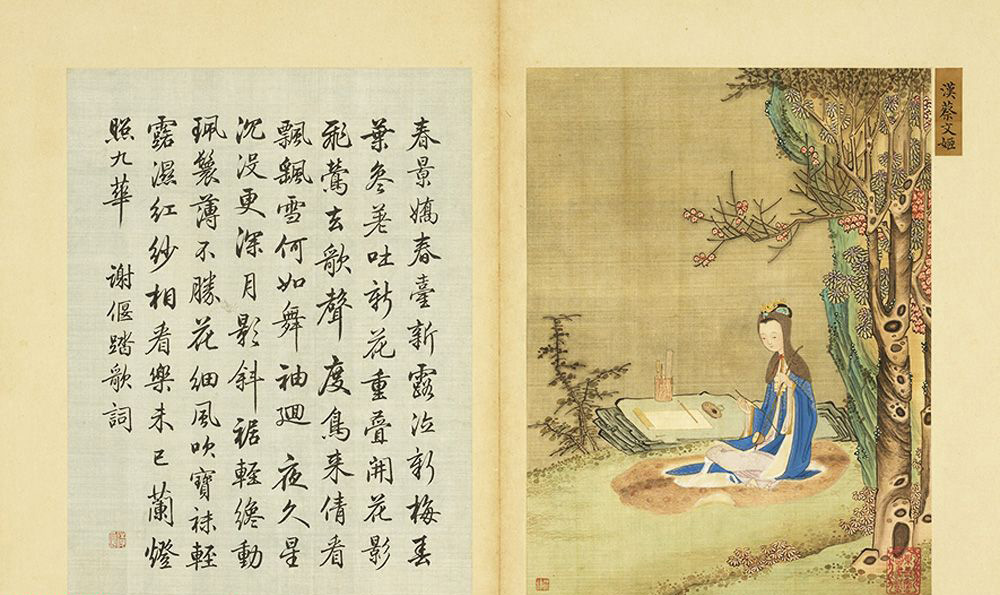 漢蔡文姬
春景嬌春臺新露泣新梅春
葉參差吐新花重疊開花影
飛鶯去歌聲度鳥来倩看
飄飄雪何如舞袖迴夜久星
沉沒更深月影斜裾輕纔動
珮鬟薄不勝花細風吹寶袜輕
露濕紅紗相看樂未已蘭燈
照九華 謝偃踏歌詞